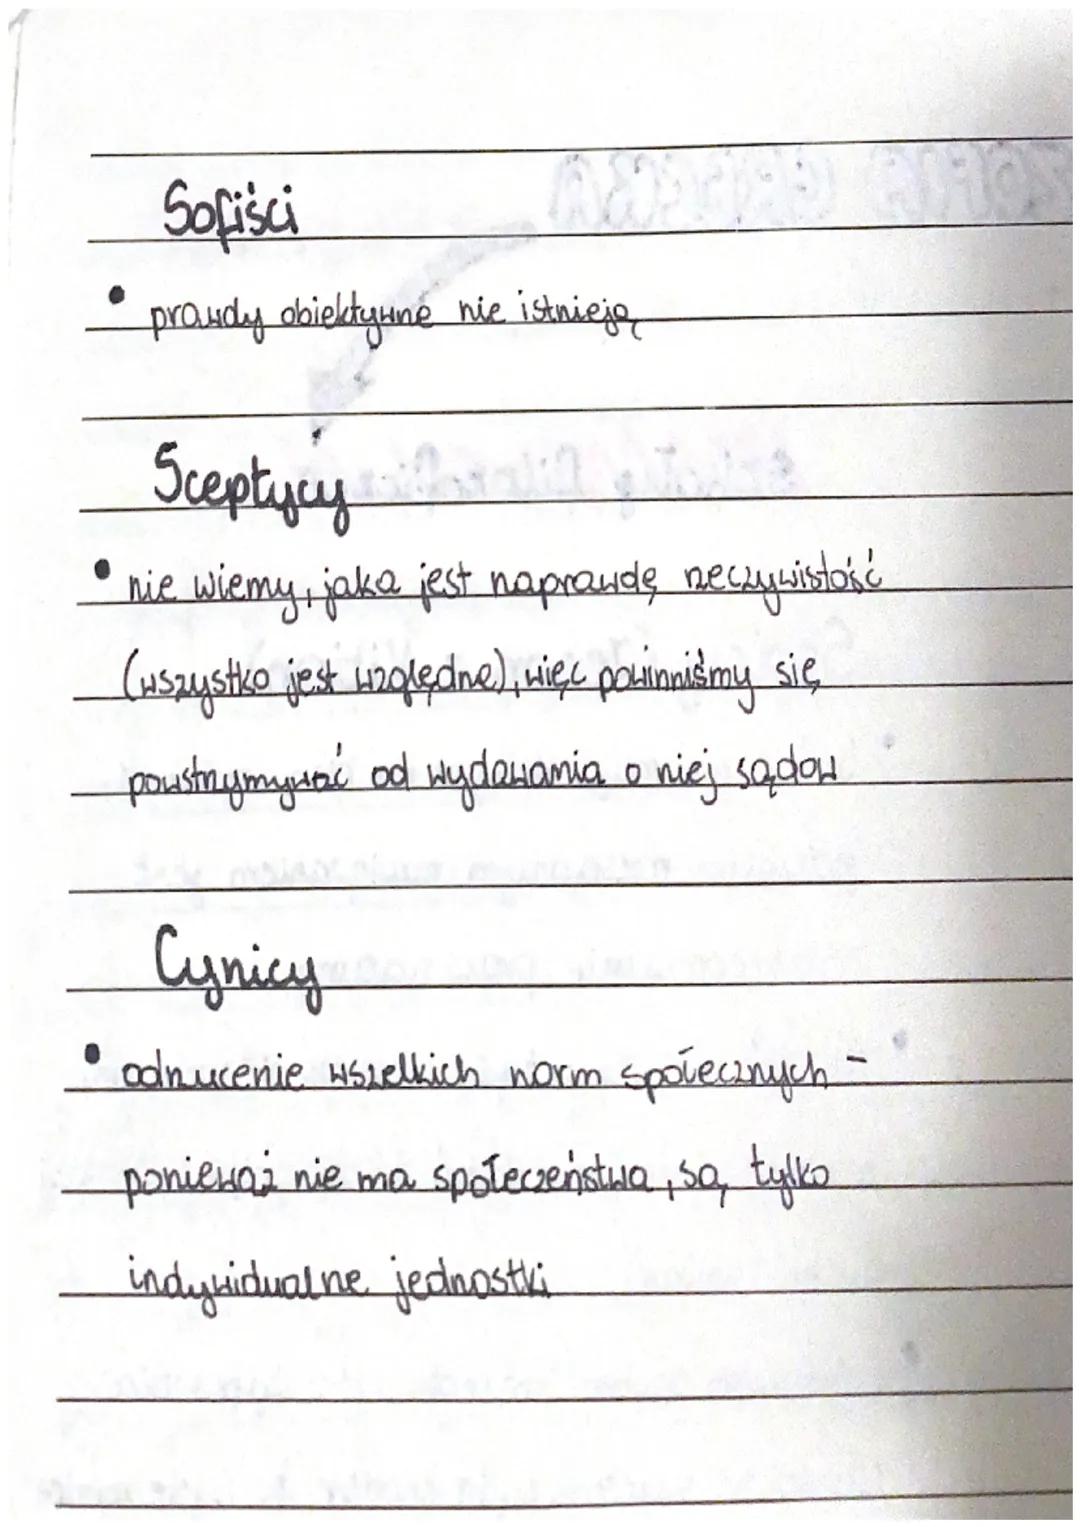 Sofiści
• prawdy obiektywne nie istnieją
Sceptycy
• nie wiemy, jaka jest naprawdę rzeczywistość
(wszystko jest względne), więc powinniśmy się
powstrzymywać od wydawania o niej sądow
Cynicy
• odrzucenie wszelkich norm społecznych -
ponieważ nie ma społeczeństwa, są tylko
indywidualne jednostki